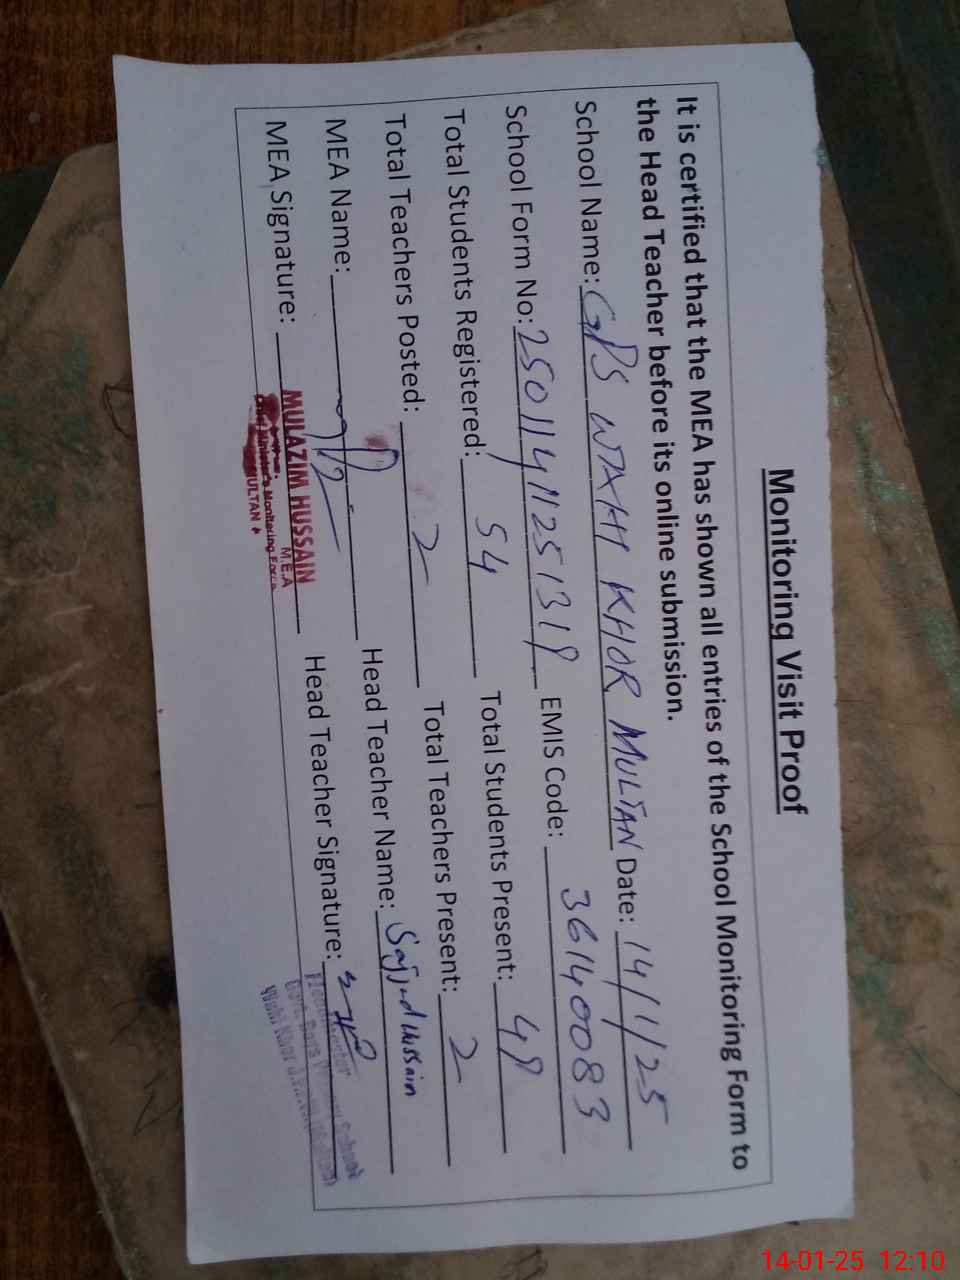 Monitoring Visit Proof
It is certified that the MEA has shown all entries of the School Monitoring Form to
the Head Teacher before its online submission.
School Name: GPS WAHI KHOR MULTAN Date: 14/1/25
School Form No: EMIS Code: 36140083
Total Students Registered: 54 Total Students Present: 48
Total Teachers Posted: 2 Total Teachers Present: 2
MEA Name: Head Teacher Name: Sajjad Hussain
MEA Signature: Head Teacher Signature:
MULAZIM HUSSAIN
M.E.A
Monitoring Force
MULTAN
School
14-01-25 12:10